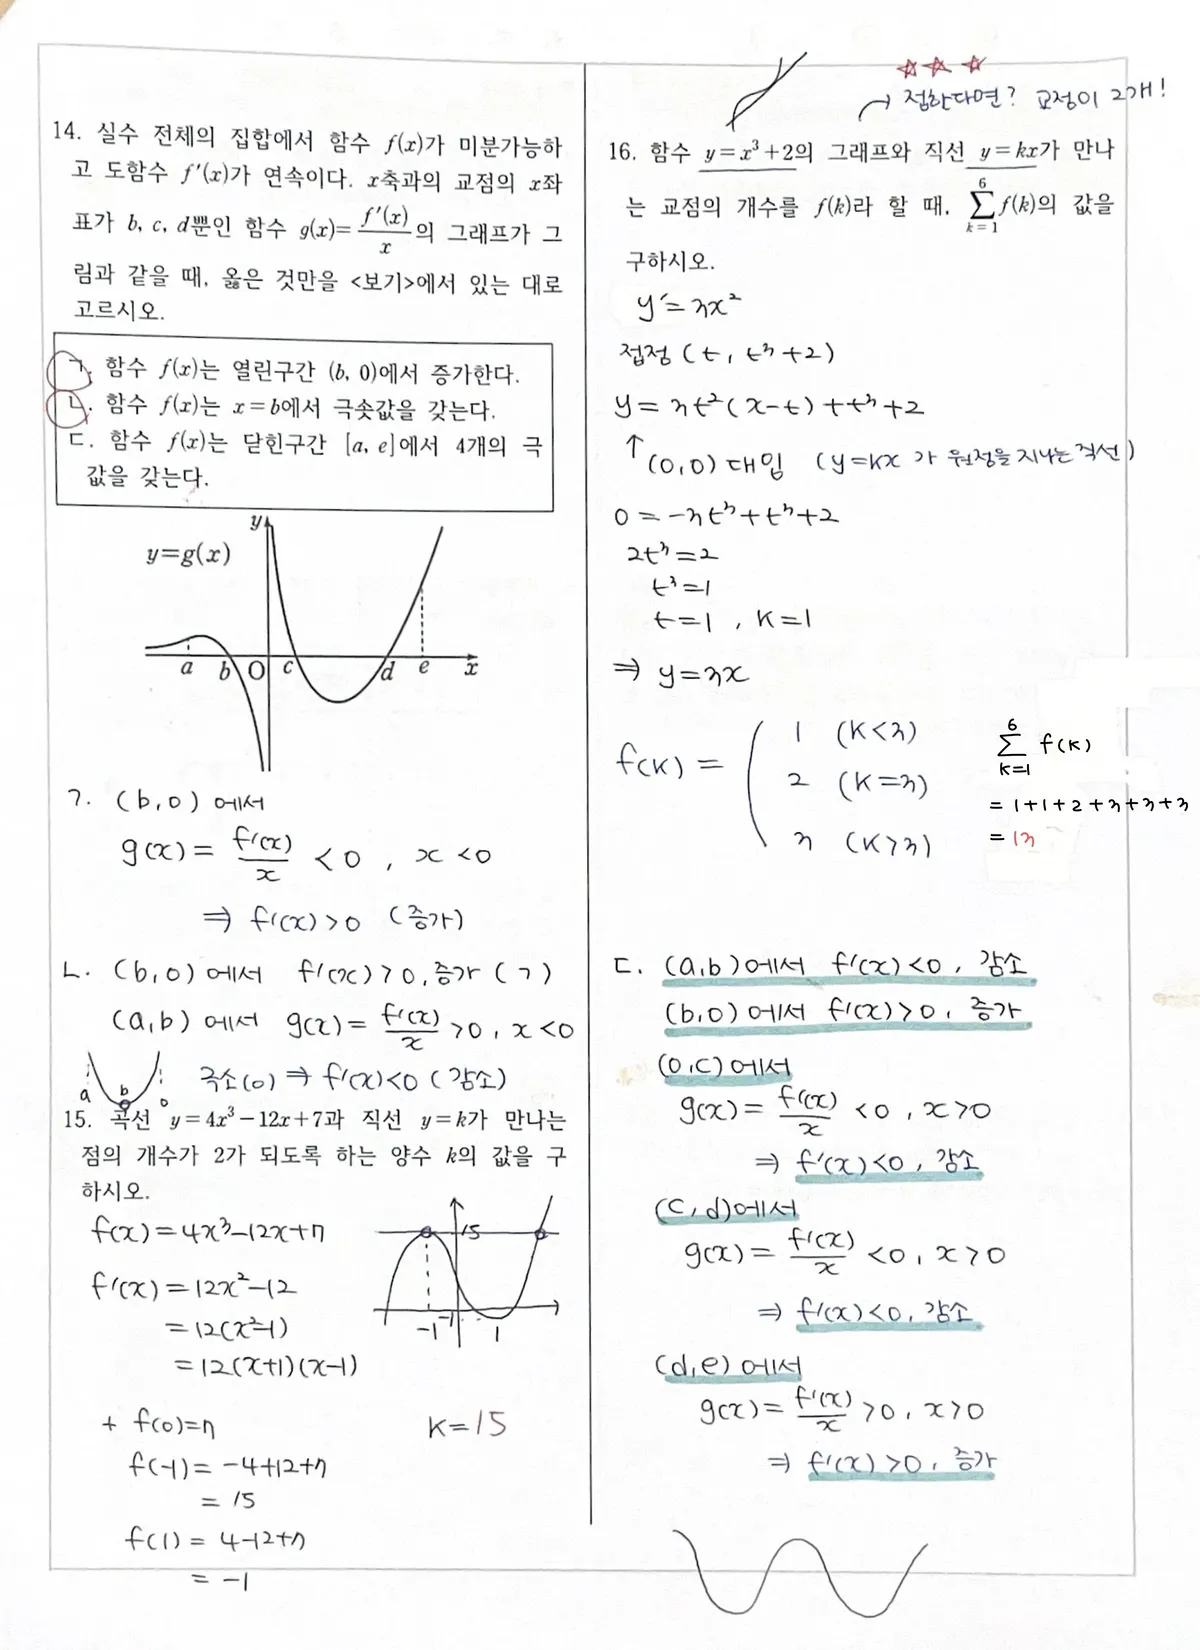 14. 실수 전체의 집합에서 함수 f(x)가 미분가능하
고 도함수 f'(x)가 연속이다. x축과의 교점의 x좌
표가 b, c, d뿐인 함수 g(x)=f'(x)/x의 그래프가 그
림과 같을 때, 옳은 것만을 <보기>에서 있는 대로
고르시오.
ㄱ. 함수 f(x)는 열린구간 (b, 0)에서 증가한다.
ㄴ. 함수 f(x)는 x=b에서 극솟값을 갖는다.
ㄷ. 함수 f(x)는 닫힌구간 [a, e]에서 4개의 극
값을 갖는다.
y
y=g(x)
a b O c d e x
ㄱ. (b,0)에서
g(x)= f'(x)/x <0, x<0
⇒ f'(x)>0 (증가)
ㄴ. (b,0)에서 f'(x)>0, 증가 (ㄱ)
(a,b)에서 g(x)= f'(x)/x >0, x<0
a b 0
극소(o) ⇒ f'(x)<0 (감소)
15. 곡선 y=4x³-12x+7과 직선 y=k가 만나는
점의 개수가 2가 되도록 하는 양수 k의 값을 구
하시오.
f(x)=4x³-12x+7
f'(x)=12x²-12
=12(x²-1)
=12(x+1)(x-1)
15
-1 -1 1
+ f(0)=7
f(-1)= -4+12+7
= 15
f(1)= 4-12+7
= -1
K=15
☆☆ ☆
→ 접한다면? 교점이 2개!
16. 함수 y=x³+2의 그래프와 직선 y=kx가 만나
는 교점의 개수를 f(k)라 할 때, 6∑k=1 f(k)의 값을
구하시오.
y'=3x²
접점 (t, t³+2)
y=3t²(x-t)+t³+2
↑ (0,0) 대입 (y=kx가 원점을 지나는 직선)
0=-3t³+t³+2
2t³=2
t³=1
t=1, K=1
⇒ y=3x
f(K)= 1 (K<3)
2 (K=3)
3 (K>3)
6∑K=1 f(K)
=1+1+2+3+3+3
=13
ㄷ. (a,b)에서 f'(x)<0, 감소
(b,0)에서 f'(x)>0, 증가
(0,c)에서
g(x)= f'(x)/x <0, x>0
⇒ f'(x)<0, 감소
(c,d)에서
g(x)= f'(x)/x <0, x>0
⇒ f'(x)<0, 감소
(d,e)에서
g(x)= f'(x)/x >0, x>0
⇒ f'(x)>0, 증가